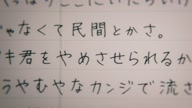 ゃなくて民間とかさ。
キ君をやめさせられるか
うやむやなカンジで流さ